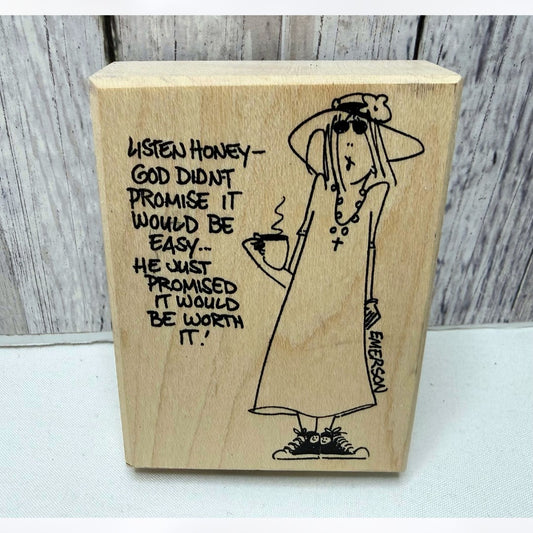 LISTEN HONEY—
GOD DIDNT
PROMISE IT
WOULD BE
EASY...
HE JUST
PROMISED
IT WOULD
BE WORTH
IT!
EMERSON